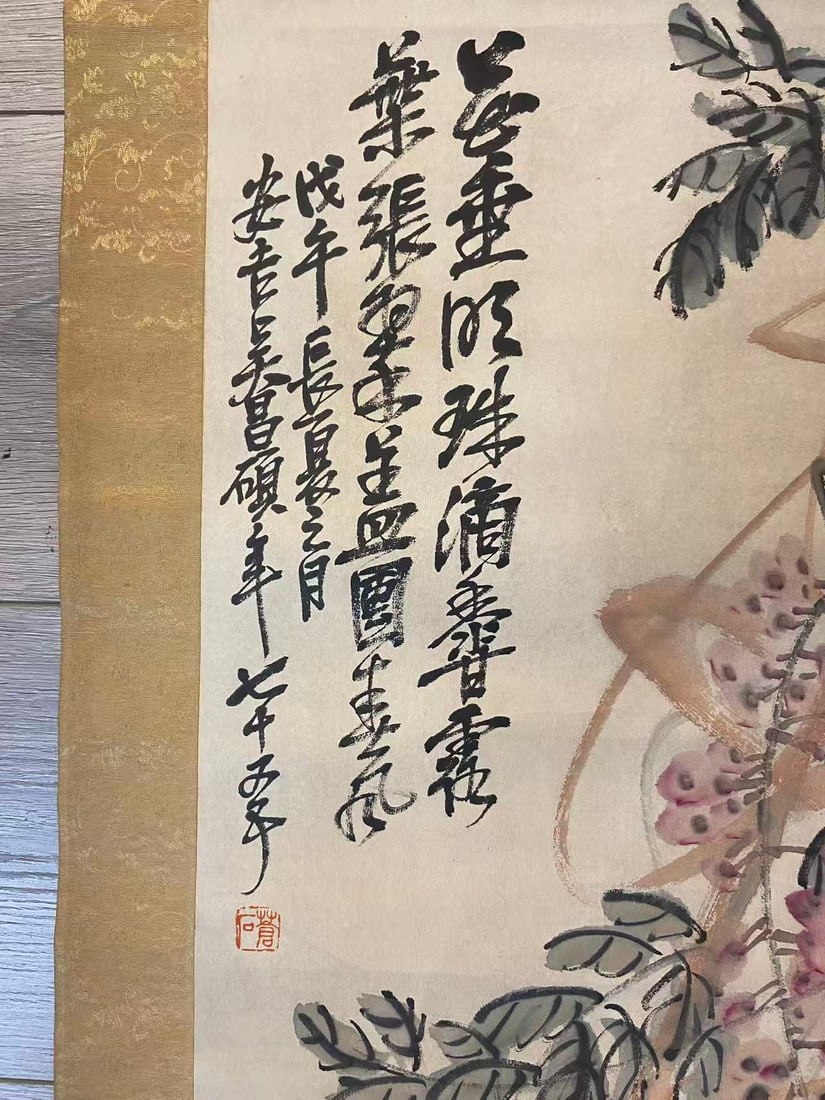 花垂明珠滴香露
葉張翠蓋團春風
戊午長夏之月
安吉吳昌碩年七十五
蒼石